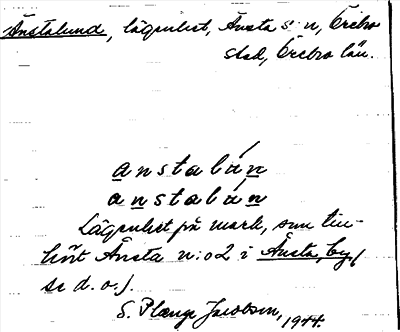 Änstalund, lägenhet, Ånsta s:n, Örebro
stad, Örebro län.
anstalán
anstalán
Lägenhet på mark, som till-
hört Ånsta n:o 2 i Ånsta, by,
se d. o.).
S. Plænge Jacobson, 1944.